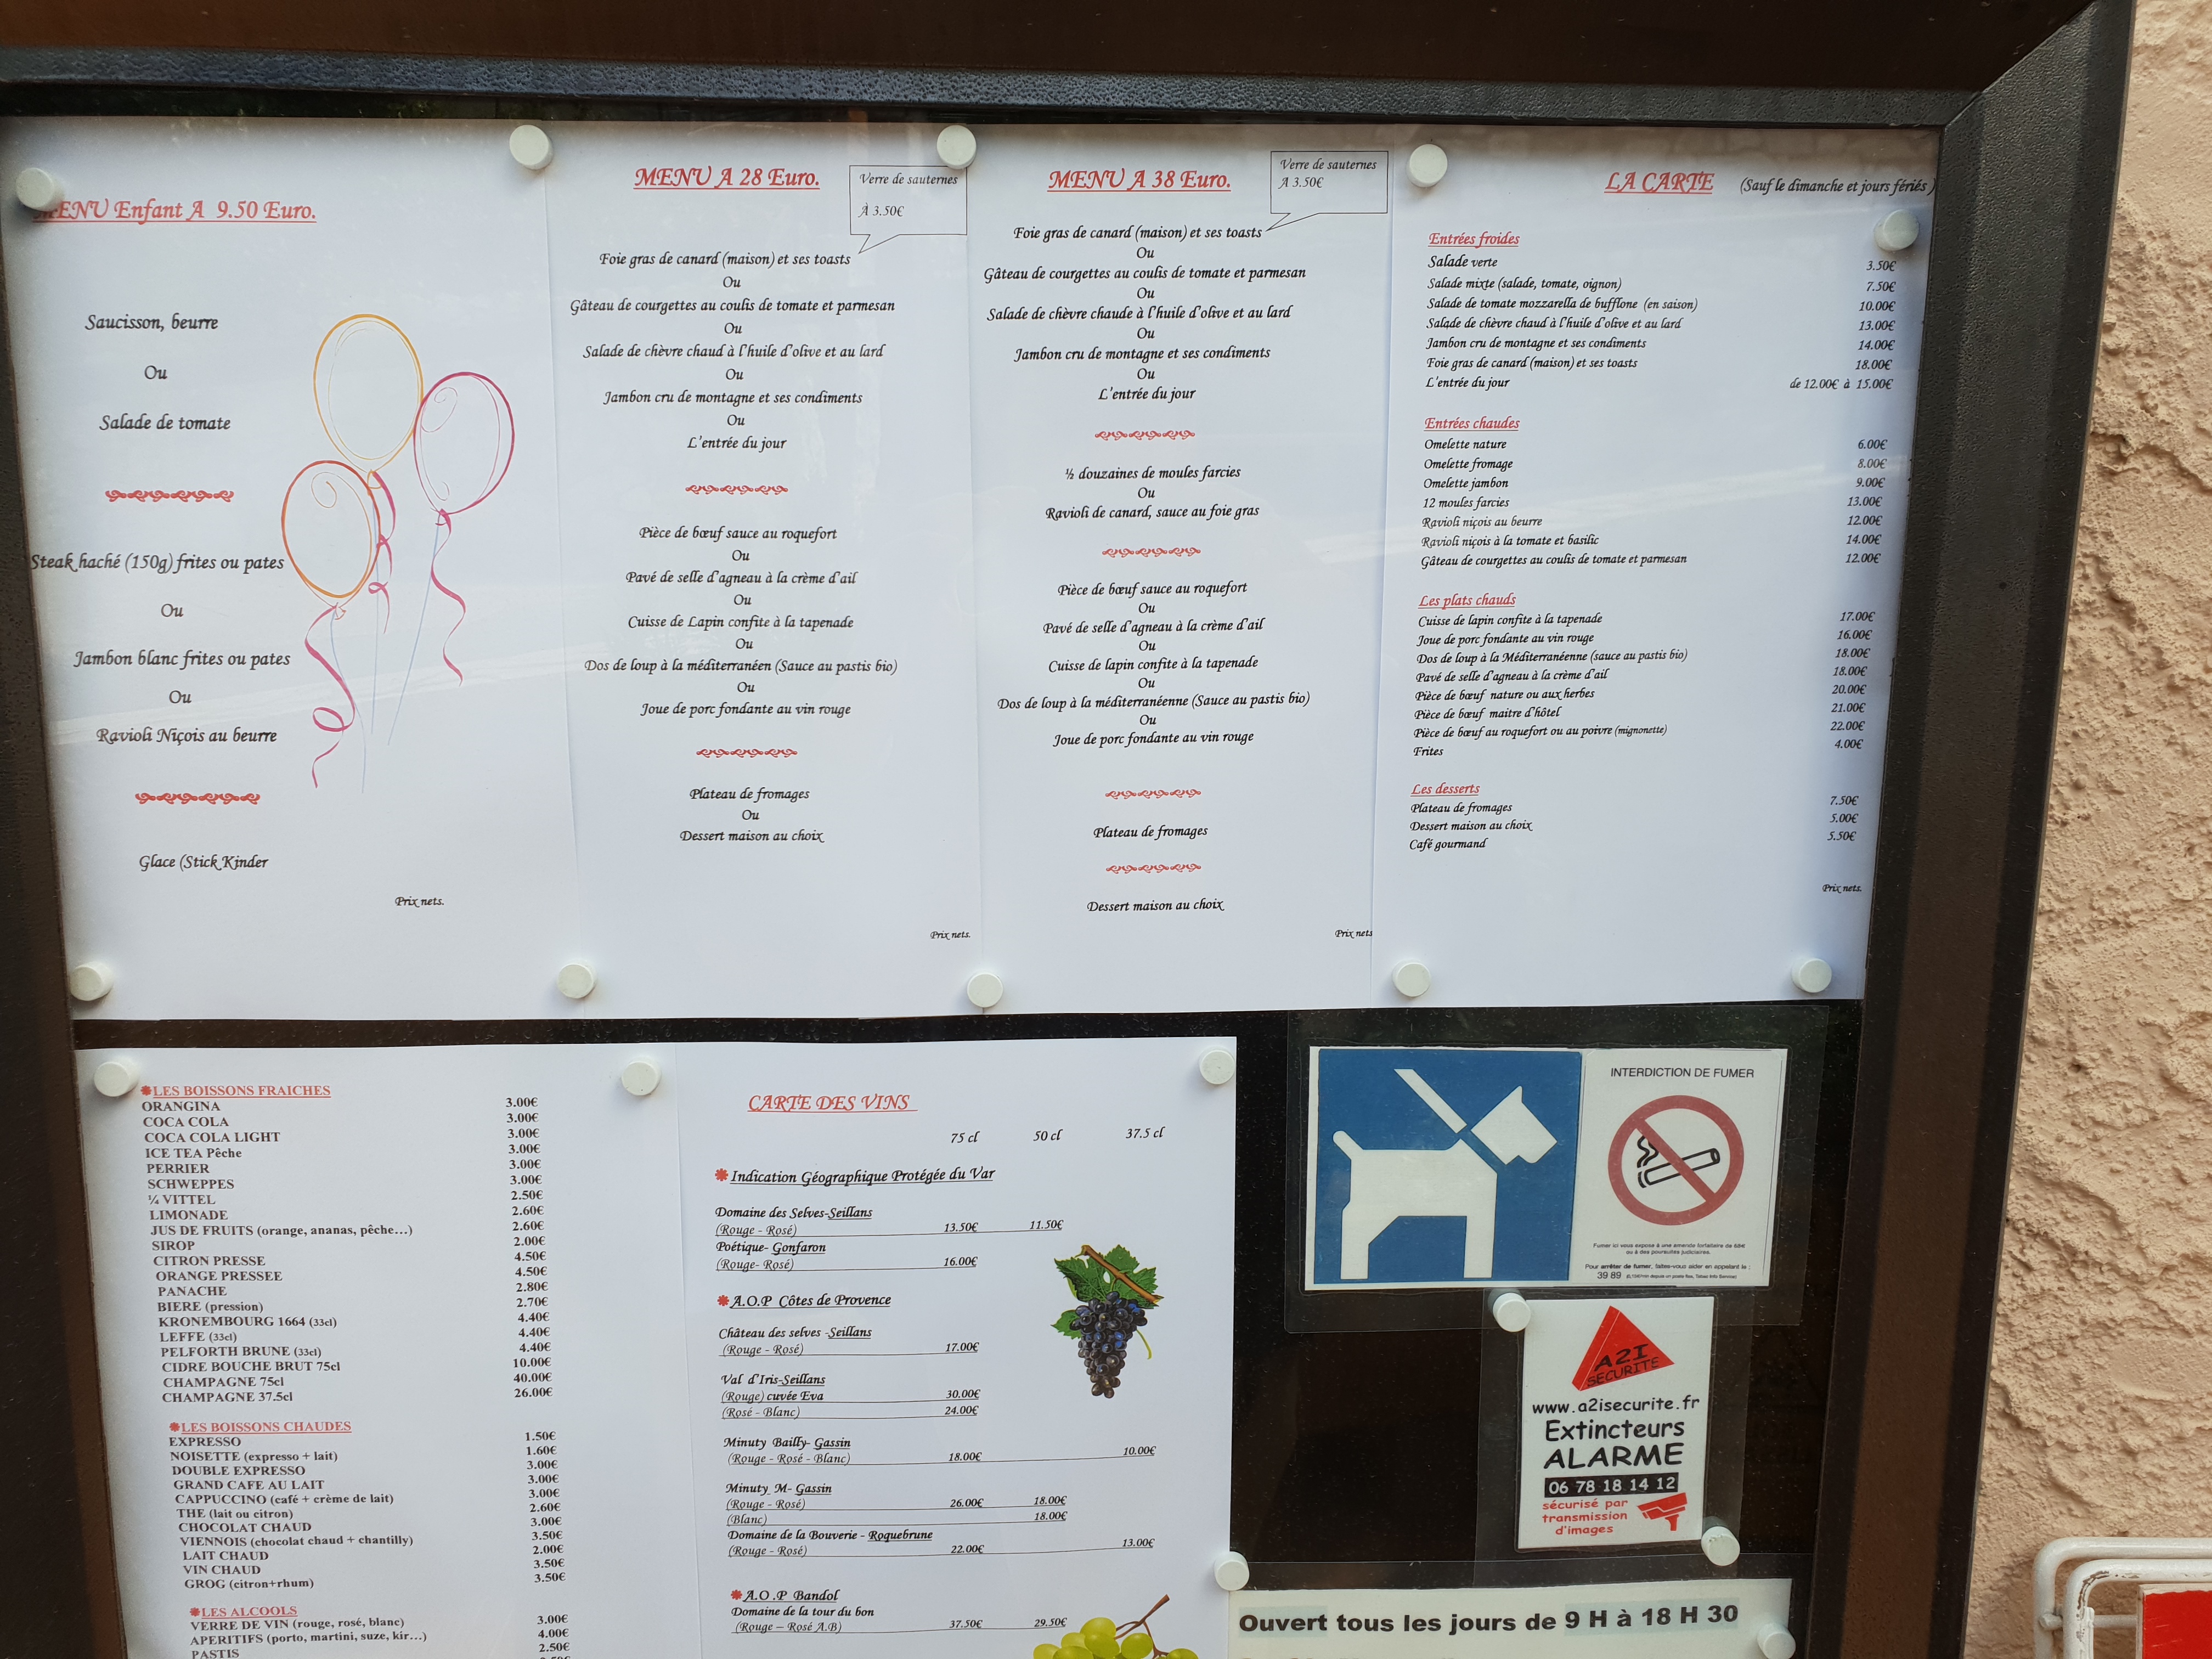 MENU Enfant A 9.50 Euro.
Saucisson, beurre
Ou
Salade de tomate
Steak haché (150g) frites ou pates
Ou
Jambon blanc frites ou pates
Ou
Ravioli Niçois au beurre
Glace (Stick Kinder
Prix nets.
MENU A 28 Euro.
Verre de sauternes
À 3.50€
Foie gras de canard (maison) et ses toasts
Ou
Gâteau de courgettes au coulis de tomate et parmesan
Ou
Salade de chèvre chaud à l'huile d'olive et au lard
Ou
Jambon cru de montagne et ses condiments
Ou
L'entrée du jour
Pièce de bœuf sauce au roquefort
Ou
Pavé de selle d'agneau à la crème d'ail
Ou
Cuisse de Lapin confite à la tapenade
Ou
Dos de loup à la méditerranéen (Sauce au pastis bio)
Ou
Joue de porc fondante au vin rouge
Plateau de fromages
Ou
Dessert maison au choix
Prix nets.
MENU A 38 Euro.
Verre de sauternes
A 3.50€
Foie gras de canard (maison) et ses toasts
Ou
Gâteau de courgettes au coulis de tomate et parmesan
Ou
Salade de chèvre chaude à l'huile d'olive et au lard
Ou
Jambon cru de montagne et ses condiments
Ou
L'entrée du jour
½ douzaines de moules farcies
Ou
Ravioli de canard, sauce au foie gras
Pièce de bœuf sauce au roquefort
Ou
Pavé de selle d'agneau à la crème d'ail
Ou
Cuisse de lapin confite à la tapenade
Ou
Dos de loup à la méditerranéenne (Sauce au pastis bio)
Ou
Joue de porc fondante au vin rouge
Plateau de fromages
Dessert maison au choix
Prix nets
LA CARTE (Sauf le dimanche et jours fériés)
Entrées froides
Salade verte 3.50€
Salade mixte (salade, tomate, oignon) 7.50€
Salade de tomate mozzarella de bufflone (en saison) 10.00€
Salade de chèvre chaud à l'huile d'olive et au lard 13.00€
Jambon cru de montagne et ses condiments 14.00€
Foie gras de canard (maison) et ses toasts 18.00€
L'entrée du jour de 12.00€ à 15.00€
Entrées chaudes
Omelette nature 6.00€
Omelette fromage 8.00€
Omelette jambon 9.00€
12 moules farcies 13.00€
Ravioli niçois au beurre 12.00€
Ravioli niçois à la tomate et basilic 14.00€
Gâteau de courgettes au coulis de tomate et parmesan 12.00€
Les plats chauds
Cuisse de lapin confite à la tapenade 17.00€
Joue de porc fondante au vin rouge 16.00€
Dos de loup à la Méditerranéenne (sauce au pastis bio) 18.00€
Pavé de selle d'agneau à la crème d'ail 18.00€
Pièce de bœuf nature ou aux herbes 20.00€
Pièce de bœuf maitre d'hôtel 21.00€
Pièce de bœuf au roquefort ou au poivre (mignonette) 22.00€
Frites 4.00€
Les desserts
Plateau de fromages 7.50€
Dessert maison au choix 5.00€
Café gourmand 5.50€
Prix nets.
LES BOISSONS FRAICHES
ORANGINA 3.00€
COCA COLA 3.00€
COCA COLA LIGHT 3.00€
ICE TEA Pêche 3.00€
PERRIER 3.00€
SCHWEPPES 3.00€
¼ VITTEL 2.50€
LIMONADE 2.60€
JUS DE FRUITS (orange, ananas, pêche…) 2.60€
SIROP 2.00€
CITRON PRESSE 4.50€
ORANGE PRESSEE 4.50€
PANACHE 2.80€
BIERE (pression) 2.70€
KRONEMBOURG 1664 (33cl) 4.40€
LEFFE (33cl) 4.40€
PELFORTH BRUNE (33cl) 4.40€
CIDRE BOUCHE BRUT 75cl 10.00€
CHAMPAGNE 75cl 40.00€
CHAMPAGNE 37.5cl 26.00€
LES BOISSONS CHAUDES
EXPRESSO 1.50€
NOISETTE (expresso + lait) 1.60€
DOUBLE EXPRESSO 3.00€
GRAND CAFE AU LAIT 3.00€
CAPPUCCINO (café + crème de lait) 3.00€
THE (lait ou citron) 2.60€
CHOCOLAT CHAUD 3.00€
VIENNOIS (chocolat chaud + chantilly) 3.50€
LAIT CHAUD 2.00€
VIN CHAUD 3.50€
GROG (citron+rhum) 3.50€
LES ALCOOLS
VERRE DE VIN (rouge, rosé, blanc) 3.00€
APERITIFS (porto, martini, suze, kir…) 4.00€
PASTIS 2.50€
CARTE DES VINS
75 cl 50 cl 37.5 cl
Indication Géographique Protégée du Var
Domaine des Selves-Seillans
(Rouge - Rosé) 13.50€ 11.50€
Poétique- Gonfaron
(Rouge- Rosé) 16.00€
A.O.P Côtes de Provence
Château des selves -Seillans
(Rouge - Rosé) 17.00€
Val d'Iris-Seillans
(Rouge) cuvée Eva 30.00€
(Rosé - Blanc) 24.00€
Minuty Bailly- Gassin
(Rouge - Rosé - Blanc) 18.00€ 10.00€
Minuty M- Gassin
(Rouge - Rosé) 26.00€ 18.00€
(Blanc) 18.00€
Domaine de la Bouverie - Roquebrune
(Rouge - Rosé) 22.00€ 13.00€
A.O.P Bandol
Domaine de la tour du bon
(Rouge – Rosé A.B) 37.50€ 29.50€
INTERDICTION DE FUMER
Fumer ici vous expose à une amende forfaitaire de 68€
ou à des poursuites judiciaires.
Pour arrêter de fumer, faites-vous aider en appelant le :
39 89
A2I
SECURITE
www.a2isecurite.fr
Extincteurs
ALARME
06 78 18 14 12
sécurisé par
transmission
d'images
Ouvert tous les jours de 9 H à 18 H 30